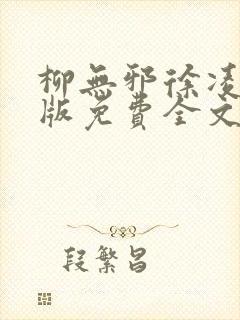 柳無邪徐凌
版免費全文
段繁昌